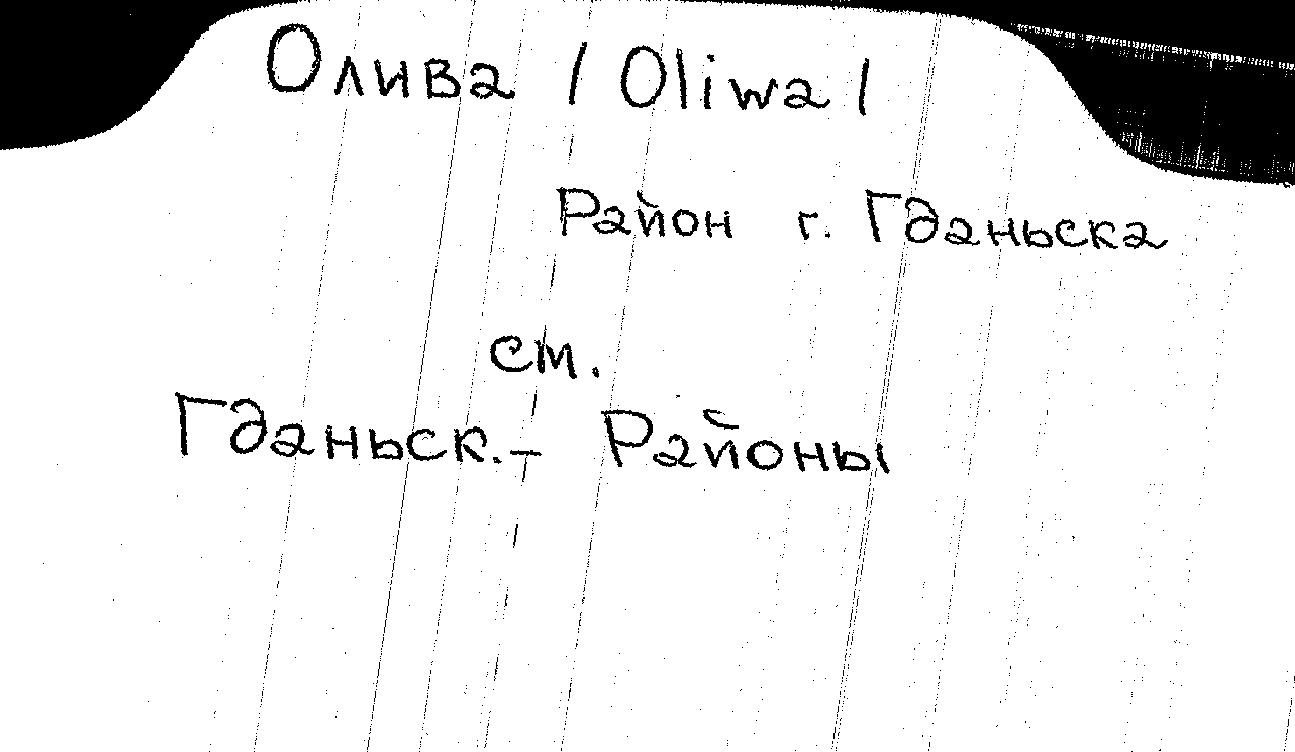 Олива / Oliwa /
Район г. Гданьска
см.
Гданьск. – Районы